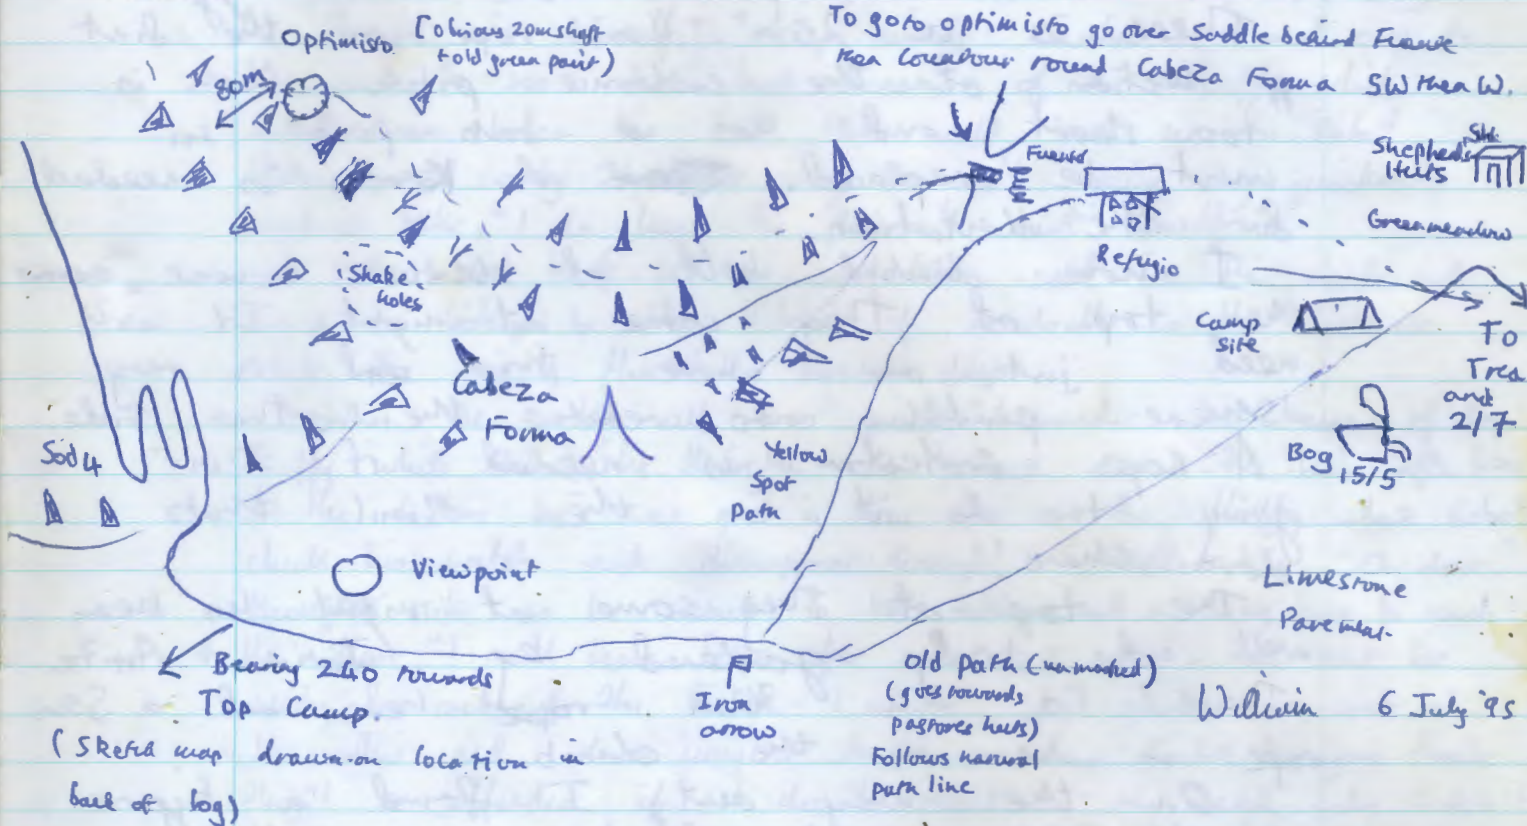 Optimisto
(obvious 20m shaft
+ old green paint)
To go to optimisto go over Saddle behind Fuente
then Contour round Cabeza Forma SW then W.
80m
Fuente
Refugio
Shepherds
Huts
Green meadow
Camp
site
To
Trea
and
2/7
Bog
15/5
Shake
holes
Cabeza
Forma
Sod 4
Yellow
Spot
Path
Viewpoint
Limestone
Pavement
Bearing 240 towards
Top Camp.
(Sketch map drawn on location in
back of log)
Iron
arrow
Old path (unmarked)
(goes towards
pastores huts)
Follows natural
path line
William 6 July '95